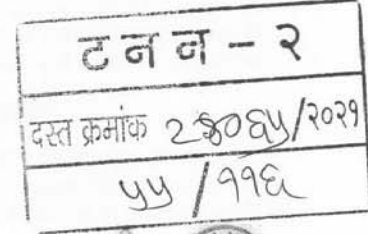 ट न न - २
दस्त क्रमांक २३०६५/२०२१
५५/११६